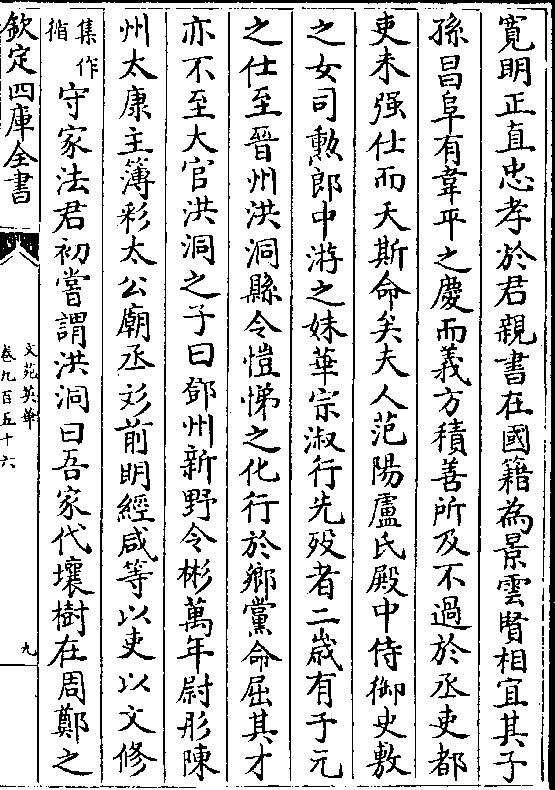 寬明正直忠孝於君親書在國籍為景雲賢相宜其子
孫昌阜有韋平之慶而義方積善所及不過於丞吏都
吏未强仕而夭斯命矣夫人范陽盧氏殿中侍御史敷
之女司勲郎中游之妹華宗淑行先歿者二歲有子元
之仕至晉州洪洞縣令愷悌之化行於鄉黨命屈其才
亦不至大官洪洞之子曰鄧州新野令彬萬年尉彤陳
州太康主簿彩太公廟丞彣前明經咸等以吏以文修
集作
循
守家法君初嘗謂洪洞曰吾家代壤樹在周鄭之
欽定四庫全書
文苑英華
卷九百五十六
九